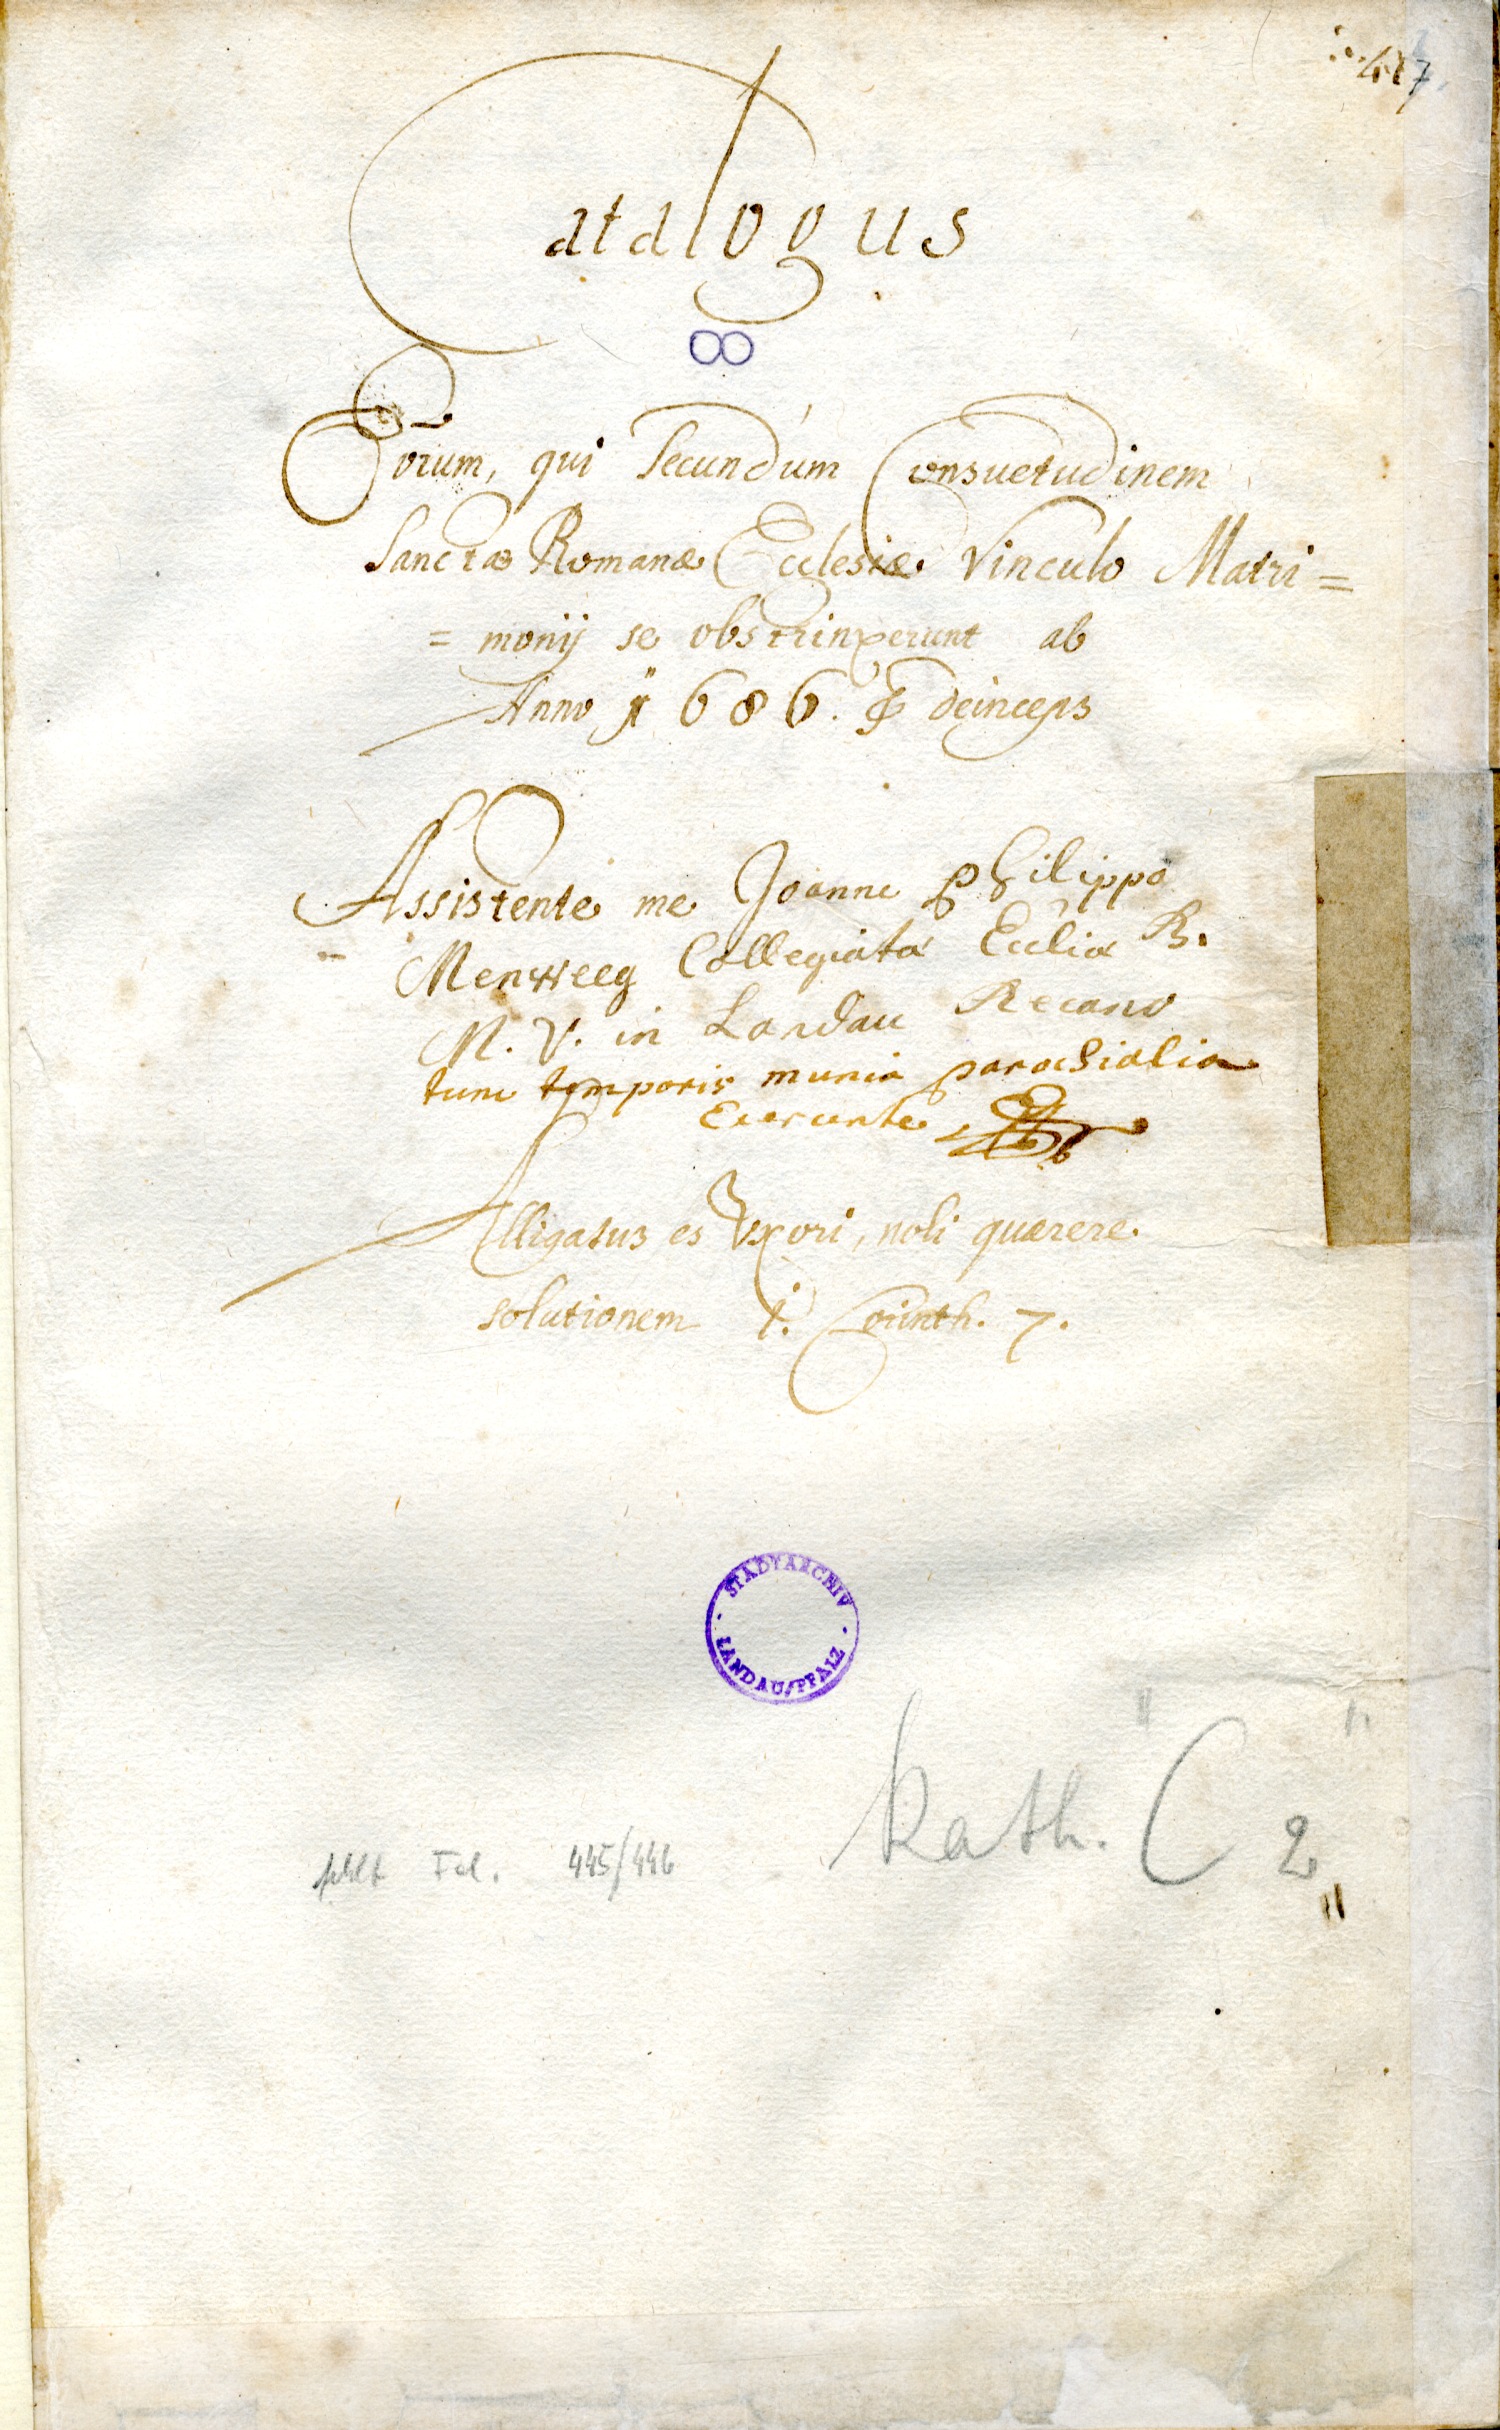 447
Catalogus
Eorum, qui Secundum Consuetudinem
Sanctæ Romanæ Ecclesiæ Vinculo Matri=
= monij se obstrinxerunt ab
Anno 1686. & deinceps
Assistente me Joanne Philippo
Menweeg Collegiata Ecclia B.
M. V. in Landau Decano
tunc temporis munia parochialia
Exercente
Alligatus es Vxori, noli quærere
solutionem 1. Corinth. 7.
STADTARCHIV
LANDAU/PFALZ
Kath. "C 2"
fehlt Fol. 445/446